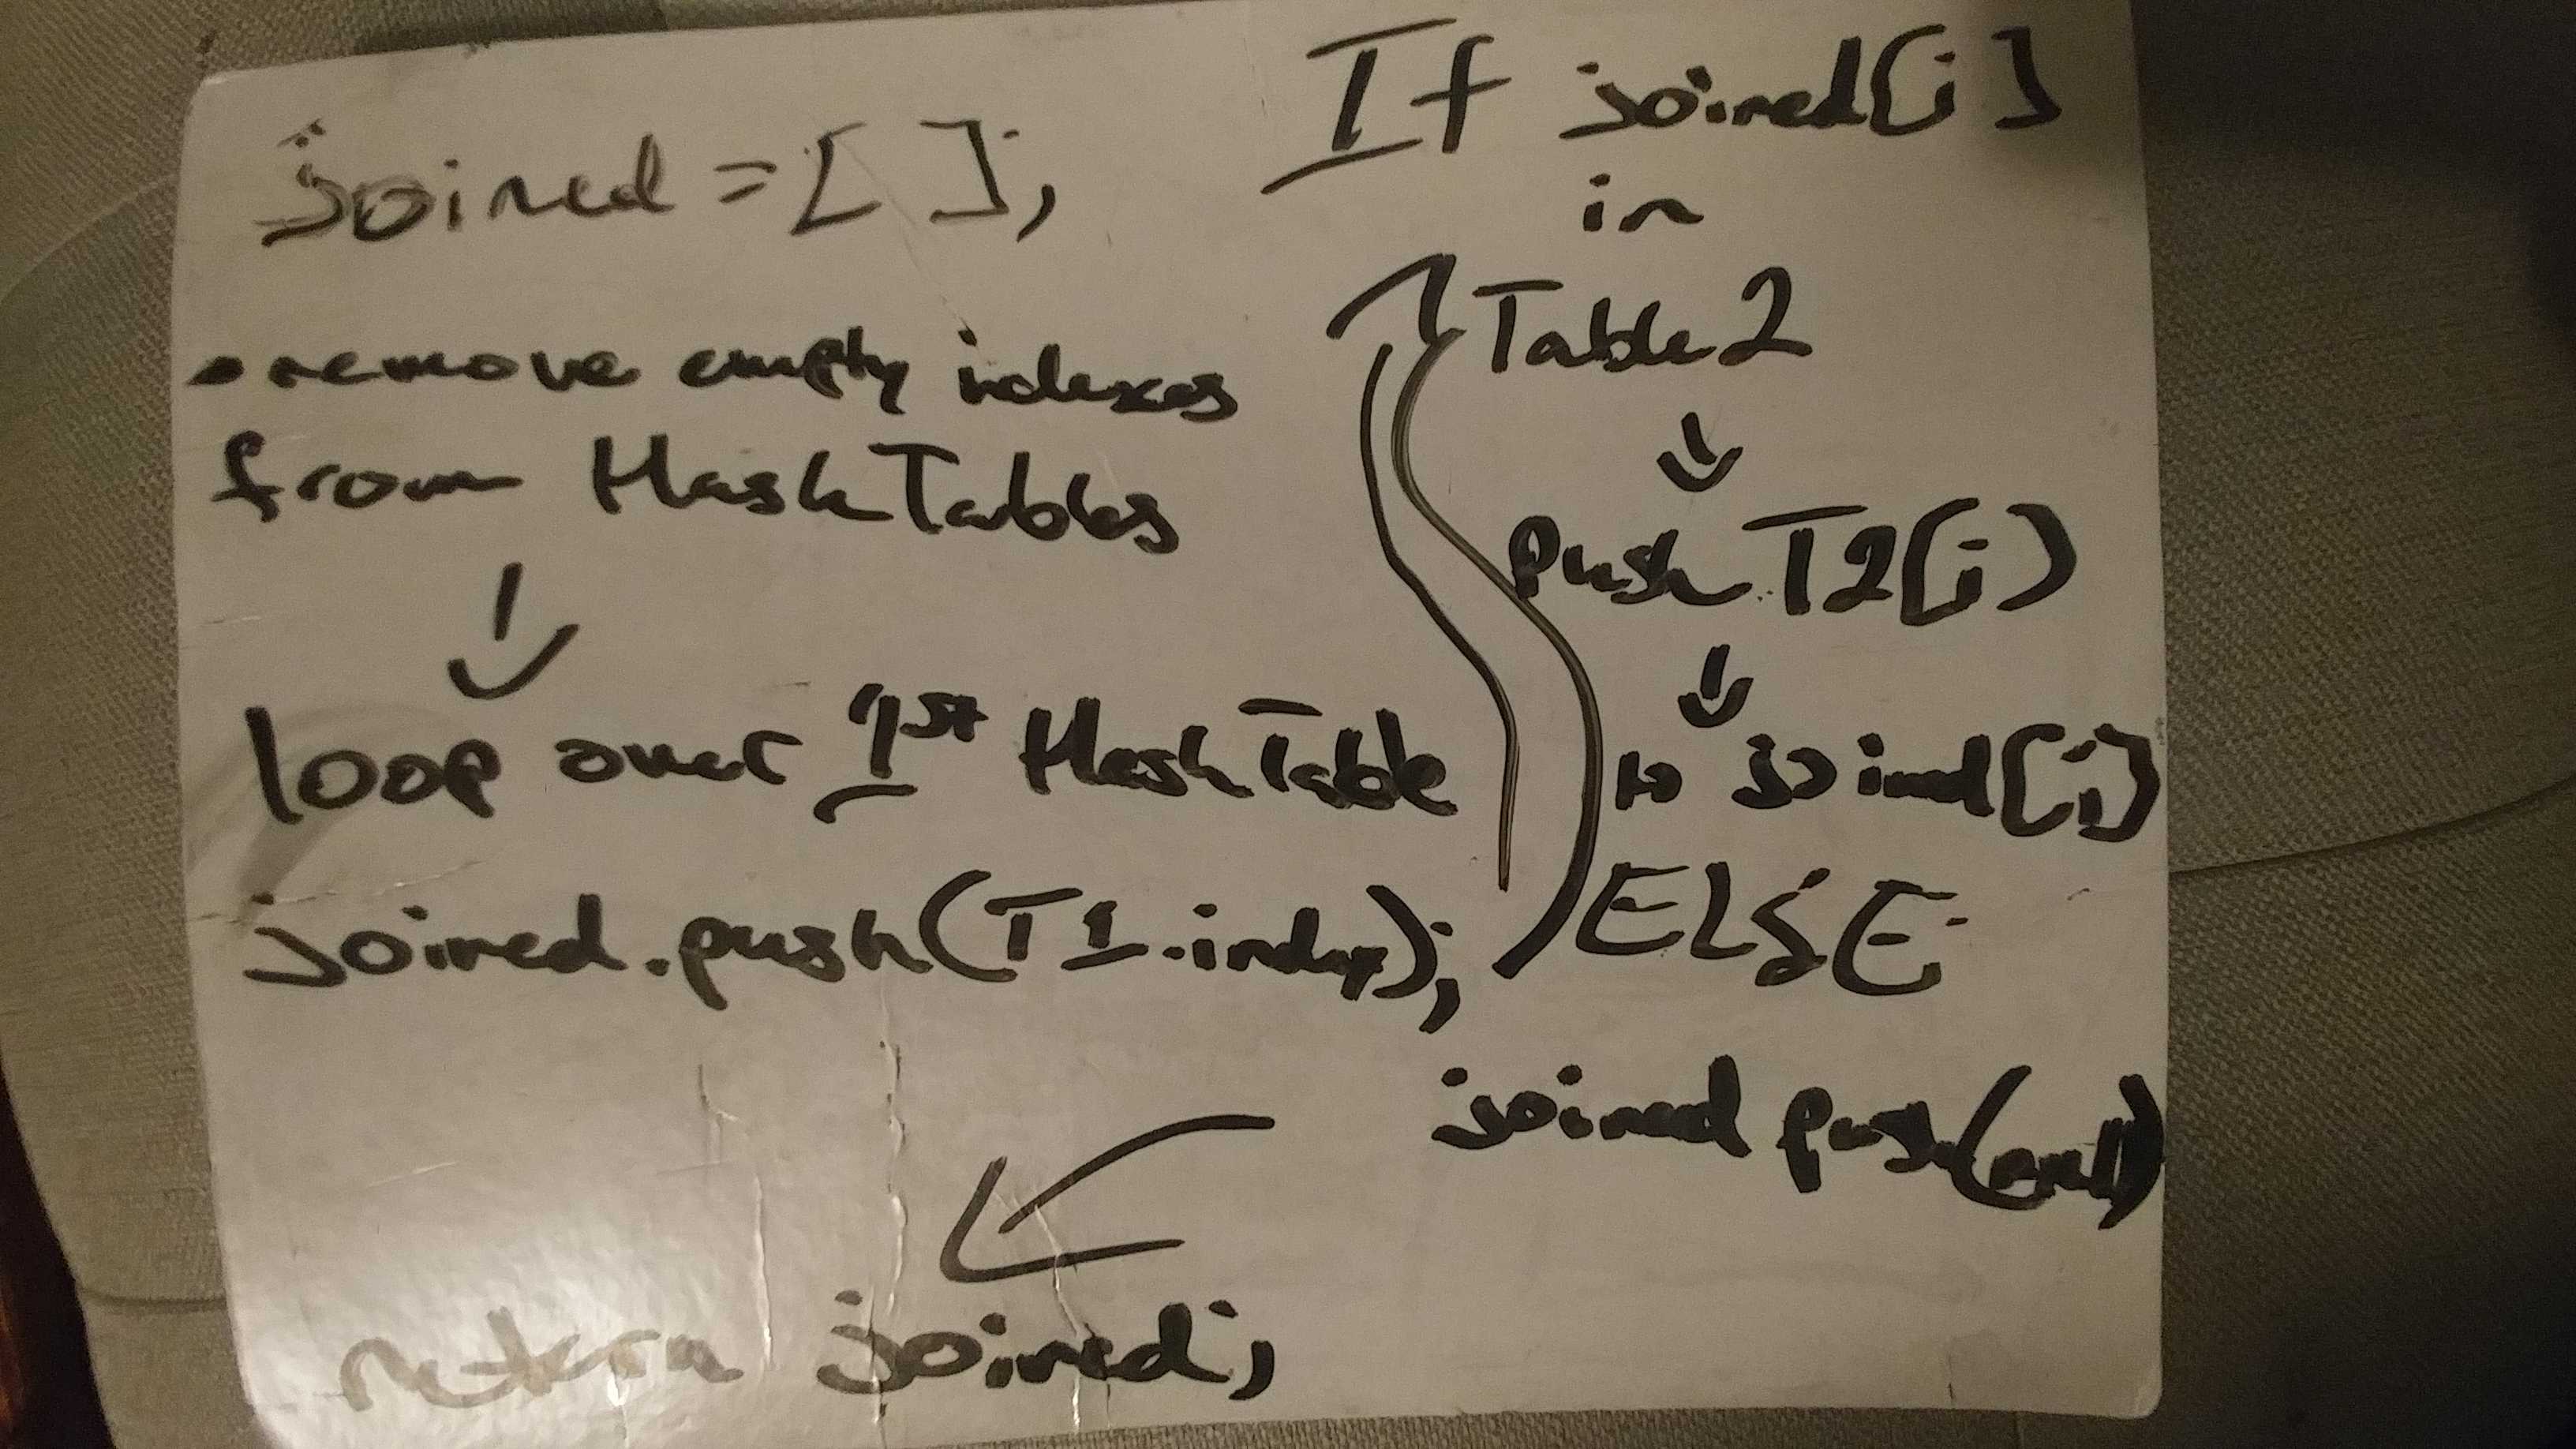 joined = [ ];
• remove empty indexes
from HashTables
loop over 1st HashTable
joined.push(T1.index);
If joined[i]
in
Table2
push T2[i]
to joined[i]
ELSE
joined push(null)
return joined;